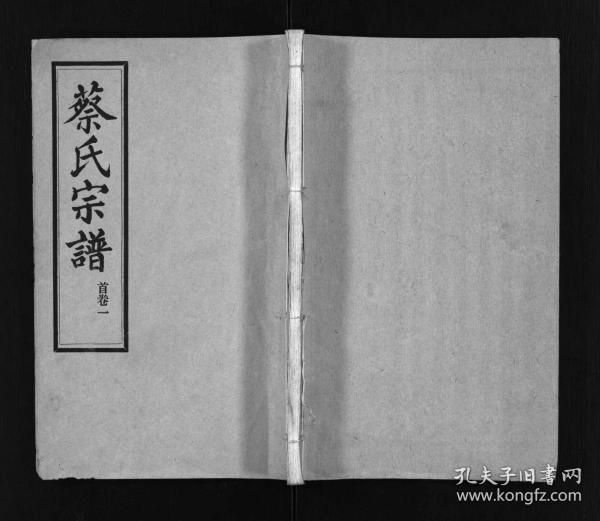 蔡氏宗譜
首卷一
孔夫子旧書网
www.kongfz.com